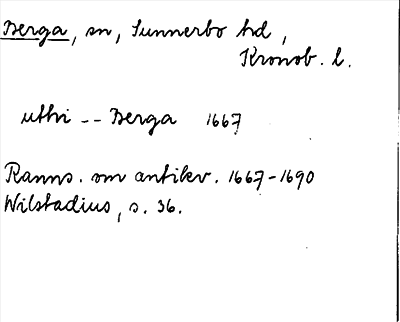 Berga, sn, Sunnerbo hd,
Kronob. l.
uthi -- Berga 1667
Ranns. om antikv. 1667-1690
Wilstadius, s. 36.